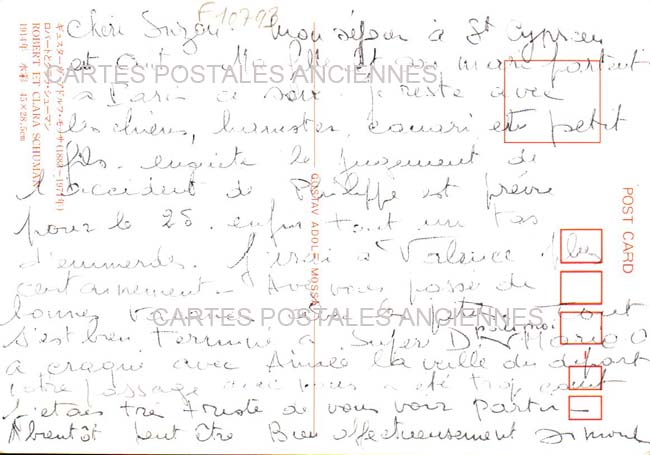 F10793
Chéri Suzon. mon séjour à St Cyprien
est
Ma fille et son mari partent
à Paris ce soir. je reste avec
les chiens, hamster, canari et petit
fils. ensuite le jugement de
l'accident de Philippe est prévu
pour le 28. enfin tout un tas
d'emmerdes. J'irai à Valence plus
certainement. Avez vous passé de
bonnes Tout
s'est bien terminé à
a craqué avec la veille du départ
votre passage a été trop court
J'étais très triste de vous voir partir -
A bientôt peut être Bien affectueusement
CARTES POSTALES ANCIENNES
CARTES POSTALES ANCIENNES
GUSTAV ADOLF MOSSA
POST CARD
ギュスターヴ・アドルフ・モッサ(1883-1971年)
ロバートとクララ・シューマン
ROBERT ET CLARA SCHUMAN
1914年 水彩 45×28.5cm